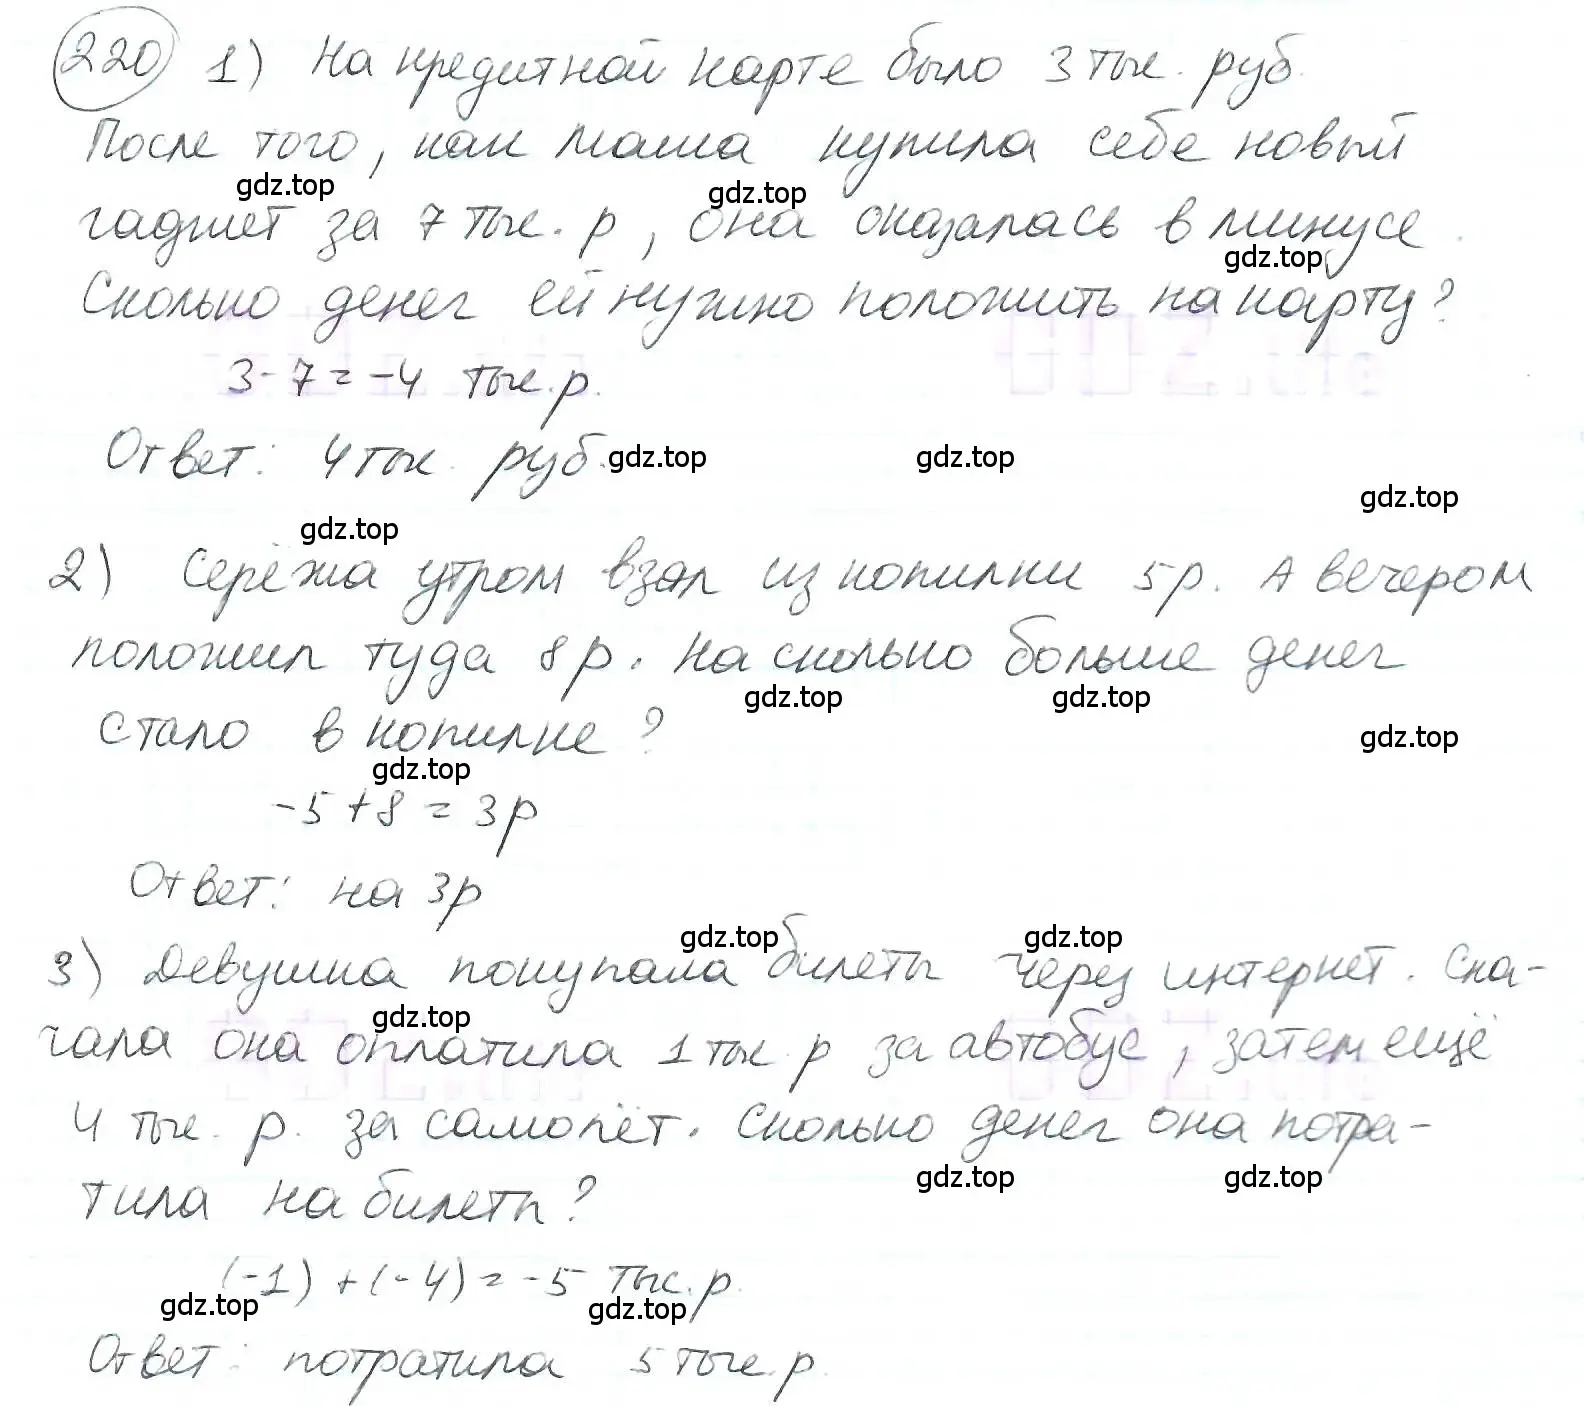 220 1) На кредитной карте было 3 тыс. руб.
После того, как Маша купила себе новый
gdz.top gdz.top
гаджет за 7 тыс. р, она оказалась в минусе.
gdz.top
Сколько денег ей нужно положить на карту?
3-7=-4 тыс.р.
Ответ: 4 тыс. руб. gdz.top gdz.top
gdz.top
gdz.top
2) Серёжа утром взял из копилки 5р. А вечером
положил туда 8р. На сколько больше денег
gdz.top gdz.top
стало в копилке?
gdz.top
gdz.top
-5+8=3р
Ответ: на 3р
gdz.top gdz.top
3) Девушка покупала билеты через интернет. Сна-
gdz.top
чала она оплатила 1 тыс. р за автобус, затем ещё
4 тыс. р. за самолёт. Сколько денег она потра-
gdz.top gdz.top
тила на билеты?
(-1)+(-4)=-5 тыс.р.
gdz.top gdz.top
Ответ: потратила 5 тыс.р.